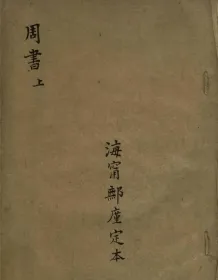 周書
上
海甯鄒廑定本